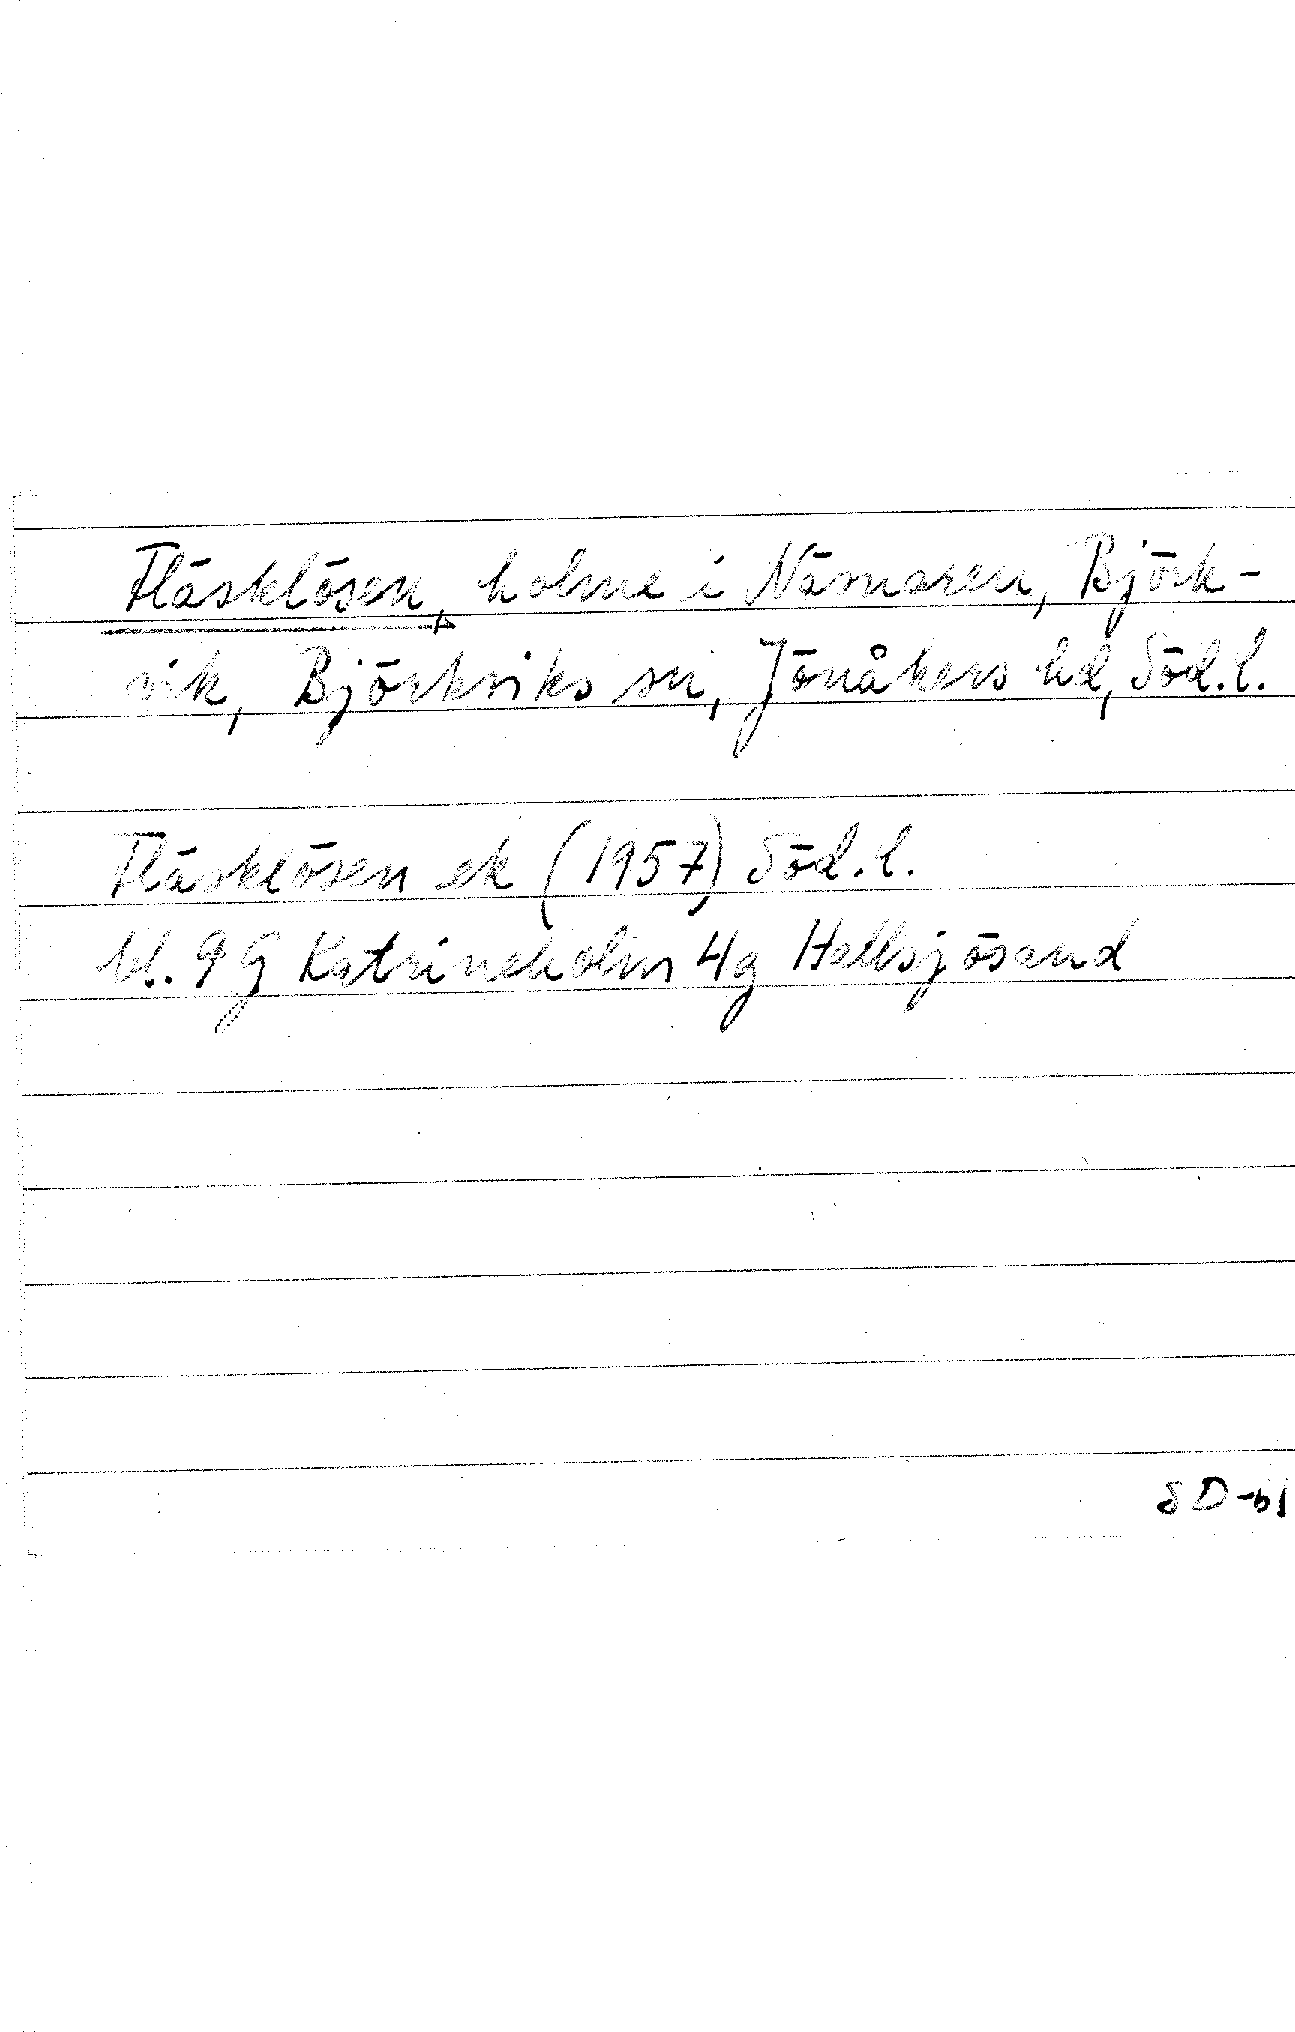 Fläsklösen, holme i Nämaren, Björk-
vik, Björkviks sn, Jönåkers hd, Söd.l.
Fläsklösen ek (1957) Söd.l.
bl. 9G Katrineholm 4g Hallsjösand
SD-bl